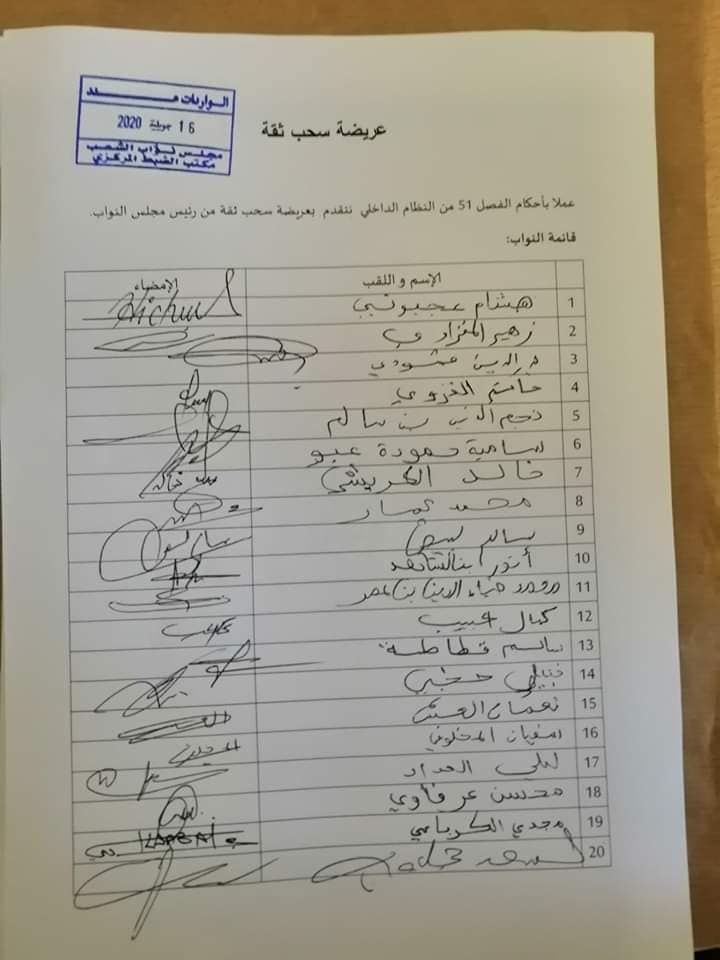 الواردات
16 جويلية 2020
مجلس نواب الشعب
مكتب الضبط المركزي
عريضة سحب ثقة
عملا بأحكام الفصل 51 من النظام الداخلي نتقدم بعريضة سحب ثقة من رئيس مجلس النواب.
قائمة النواب:
الإسم و اللقب الإمضاء
1 هشام عجبوني Hichem
2 زهير المغزاوي
3
4 حاتم
5 نجم الدين بن سالم
6 سامية حمودة عبو
7 خالد الكريشي خالد
8 محمد عمار
9 سالم لبيض
10 أنور بالشاهد
11 محمد ضياء الدين بن عمر
12 كمال حبيب
13 باسم قطاطة
14 نبيل حجي
15 نعمان العش
16 سفيان المخلوفي
17 ليلى الحداد
18 محسن عرفاوي
19 مجدي الكرباعي KARBAI
20